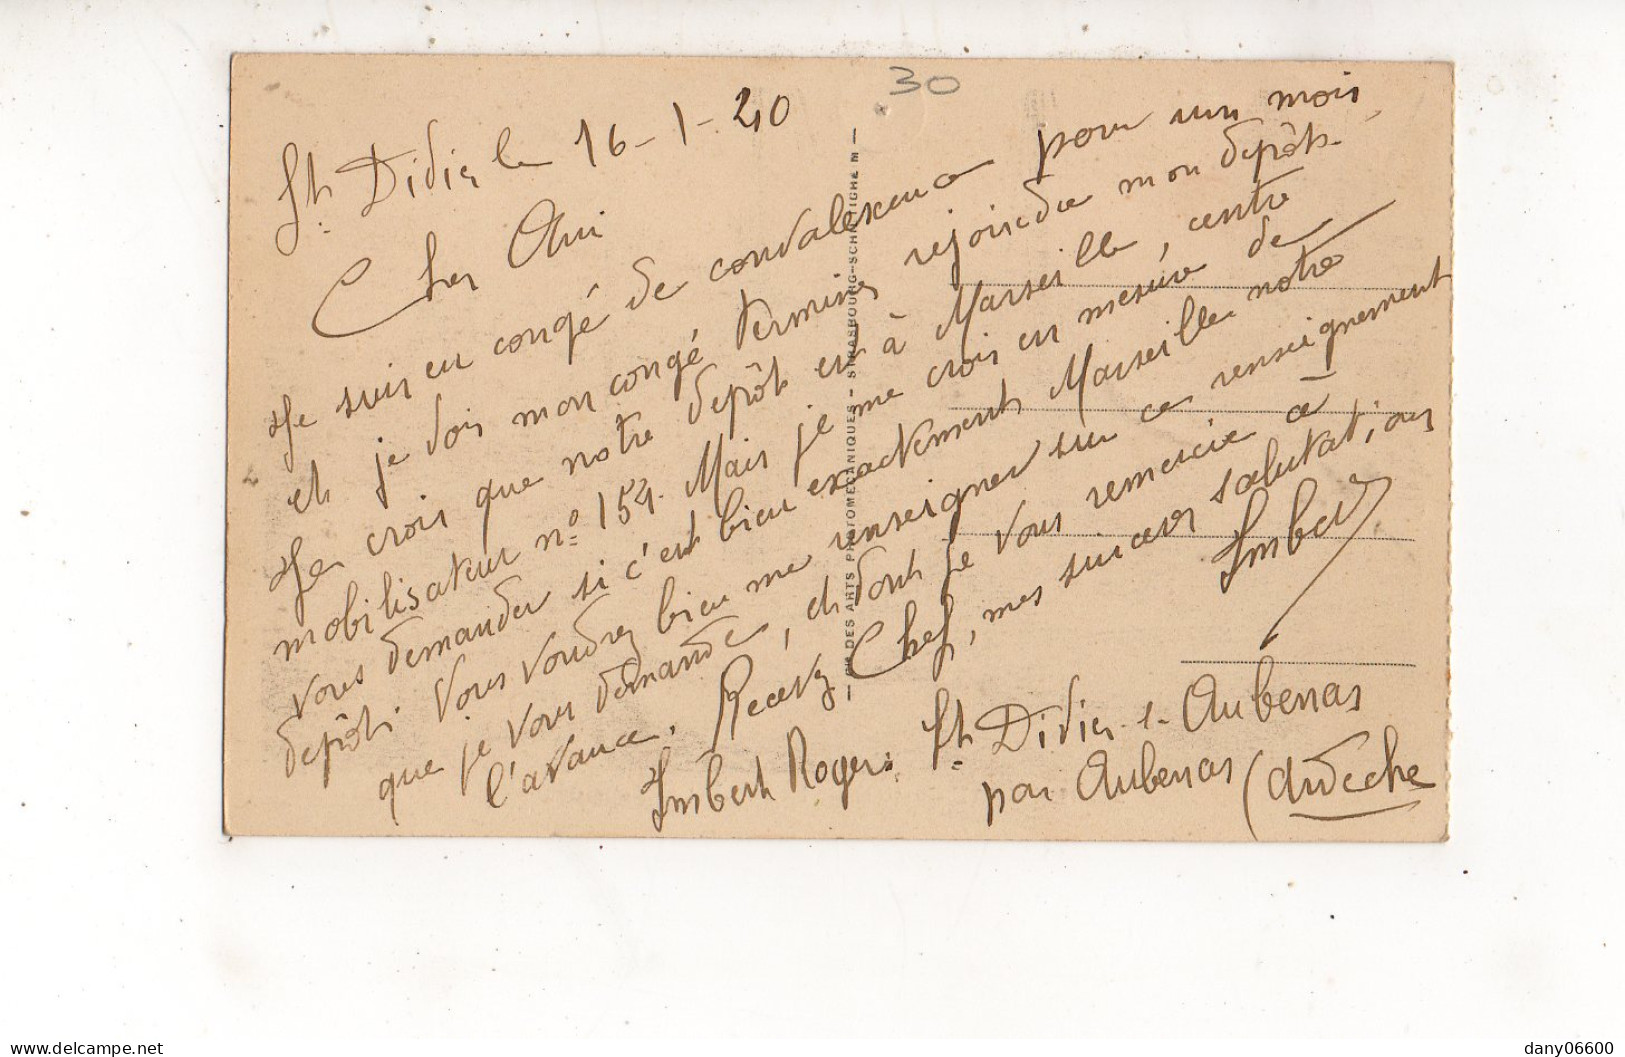 30
St. Didier le 16-1-40
Cher Ami
Je suis en congé de convalescence pour un mois,
et je dois mon congé terminé rejoindre mon dépôt.
Je crois que notre dépôt est à Marseille, centre
mobilisateur n° 154. Mais je me crois en mesure de
vous demander si c'est bien exactement Marseille notre
dépôt. Vous voudrez bien me renseigner sur ce renseignement
que je vous demande, et dont je vous remercie à
l'avance. Recevez, Chef, mes sincères salutations
Imbert
Imbert Roger. St. Didier s- Aubenas
par Aubenas (Ardèche
DES ARTS PHOTOMECANIQUES - STRASBOURG-SCHILTIGHEIM -
delcampe.net
dany06600